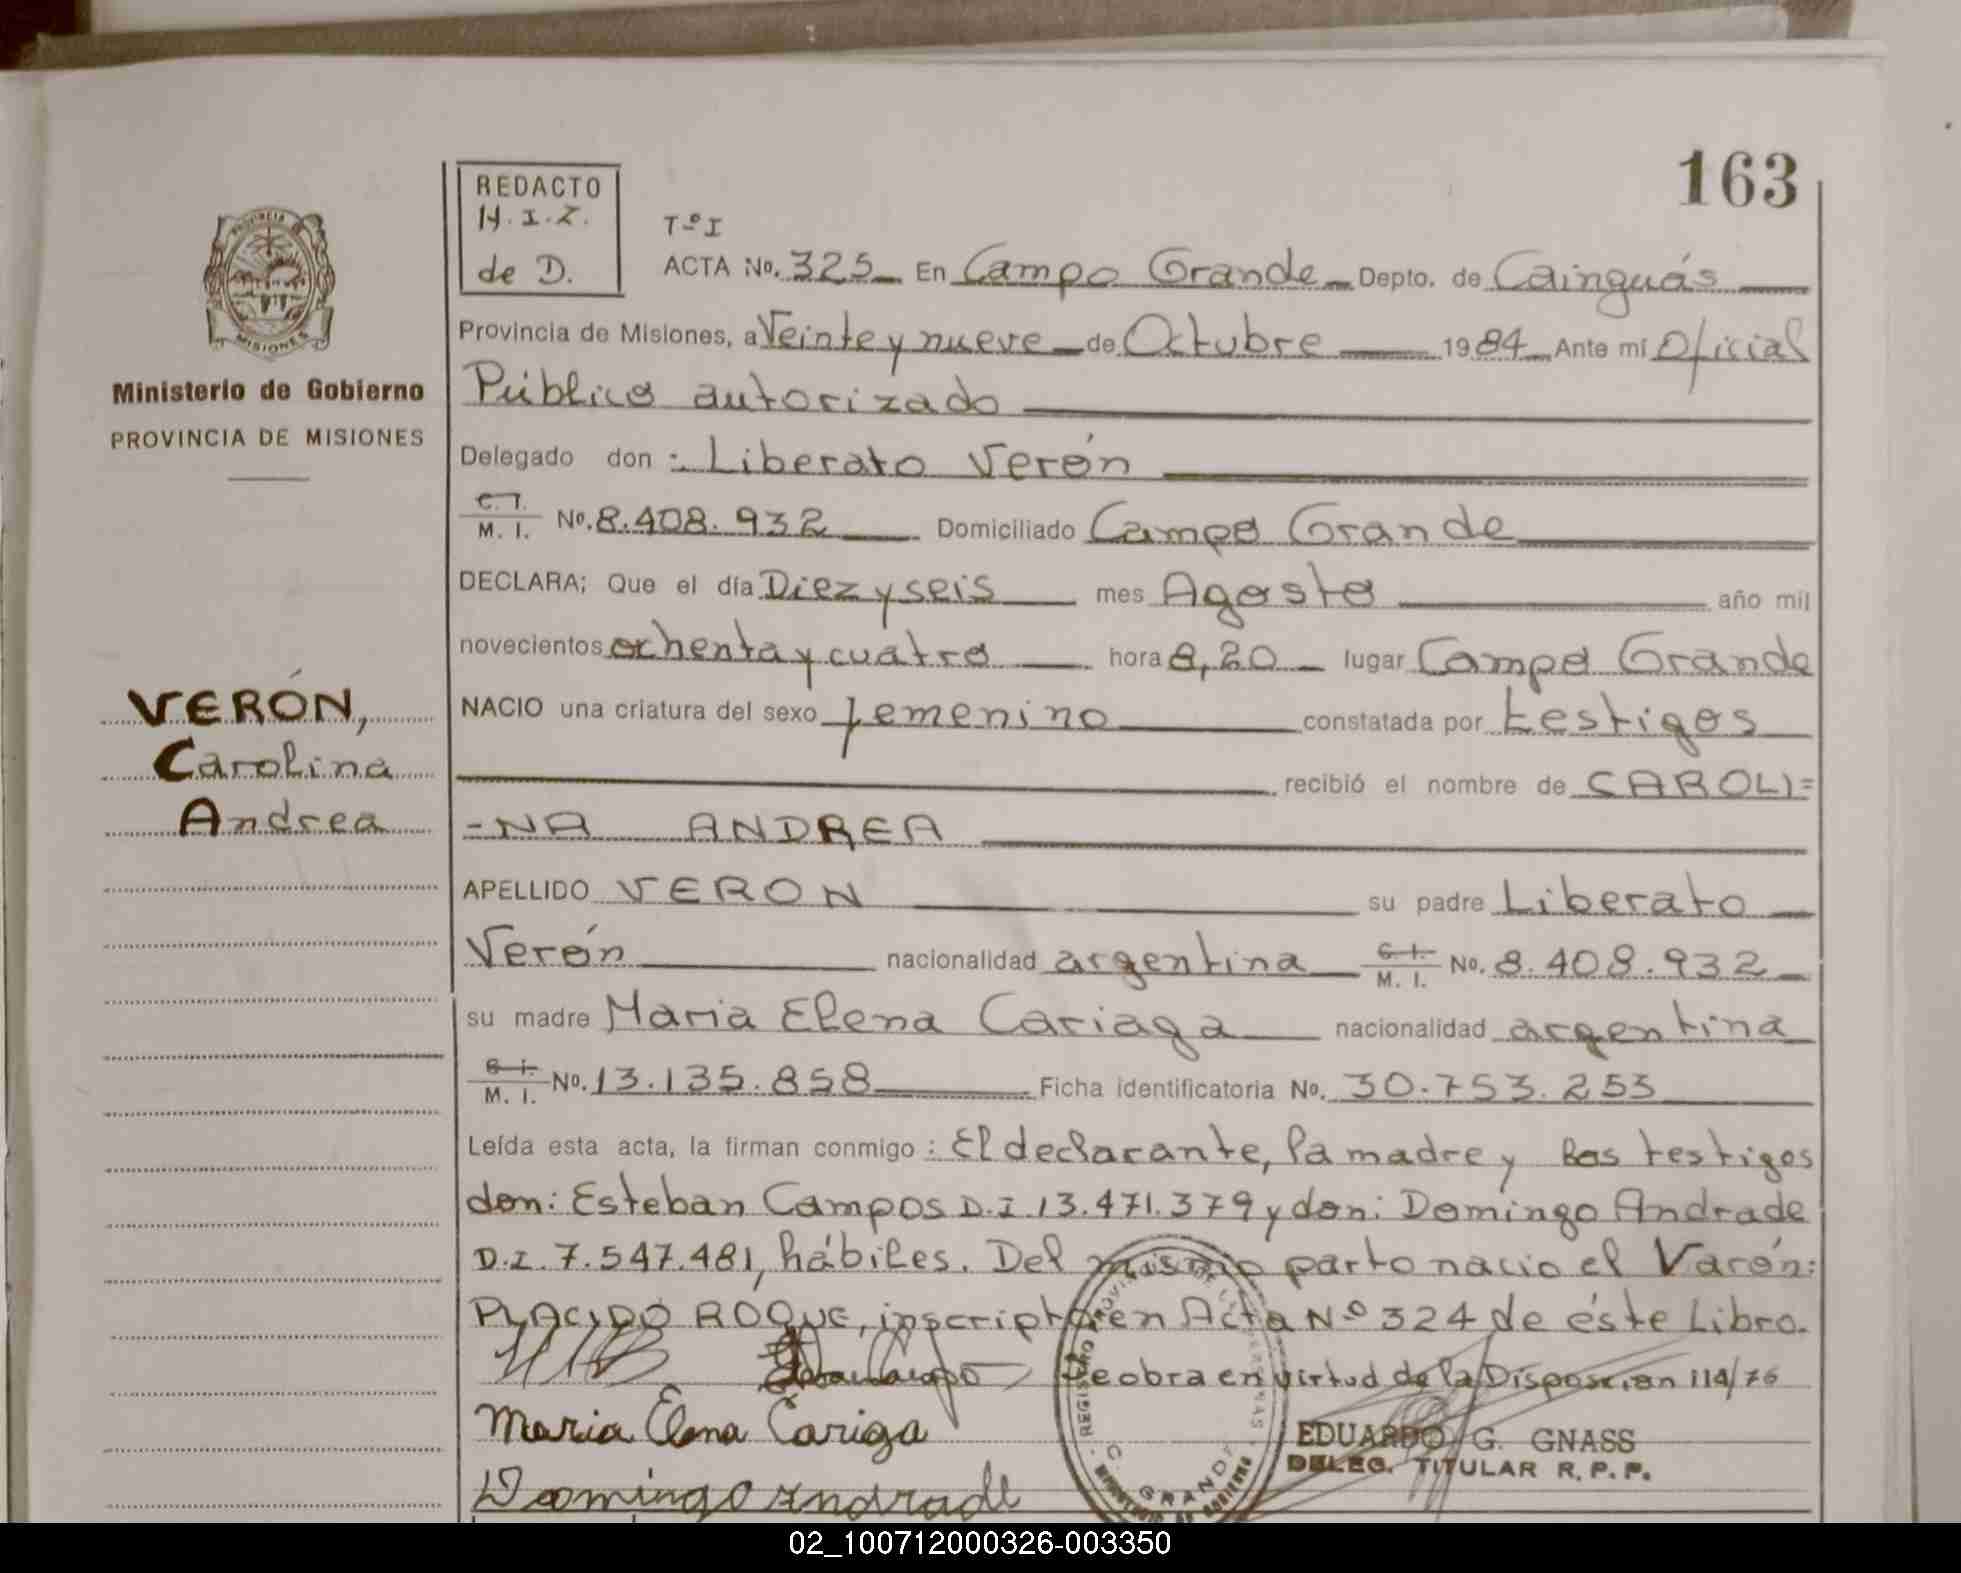 163
REDACTO
H.I.Z.
de D.
Tº I
ACTA No. 325 En Campo Grande Depto. de Cainguás
Provincia de Misiones, a Veinte y nueve de Octubre 1984 Ante mí Oficial
Público autorizado
Delegado don: Liberato Verón
C.I.
M. I. No. 8.408.932 Domiciliado Campo Grande
DECLARA; Que el día Diez y seis mes Agosto año mil
novecientos ochenta y cuatro hora 8,20 lugar Campo Grande
NACIO una criatura del sexo femenino constatada por testigos
recibió el nombre de CAROLI=
-NA ANDREA
APELLIDO VERON su padre Liberato
Verón nacionalidad argentina C.I. M. I. No. 8.408.932
su madre Maria Elena Cariaga nacionalidad argentina
C.I.
M. I. No. 13.135.858 Ficha identificatoria No. 30.753.253
Leída esta acta, la firman conmigo: El declarante, la madre y los testigos
don: Esteban Campos D.I. 13.471.379 y don: Domingo Andrade
D.I. 7.547.481, hábiles. Del mismo parto nacio el Varón:
PLACIDO ROQUE, inscripto en Acta Nº 324 de éste Libro.
Se obra en virtud de la Disposicion 114/76
Maria Elena Cariga
Domingo Andrade
EDUARDO G. GNASS
DELEG. TITULAR R.P.P.
C. GRANDE
PROVINCIA
MISIONES
Ministerio de Gobierno
PROVINCIA DE MISIONES
VERÓN,
Carolina
Andrea
02_100712000326-003350